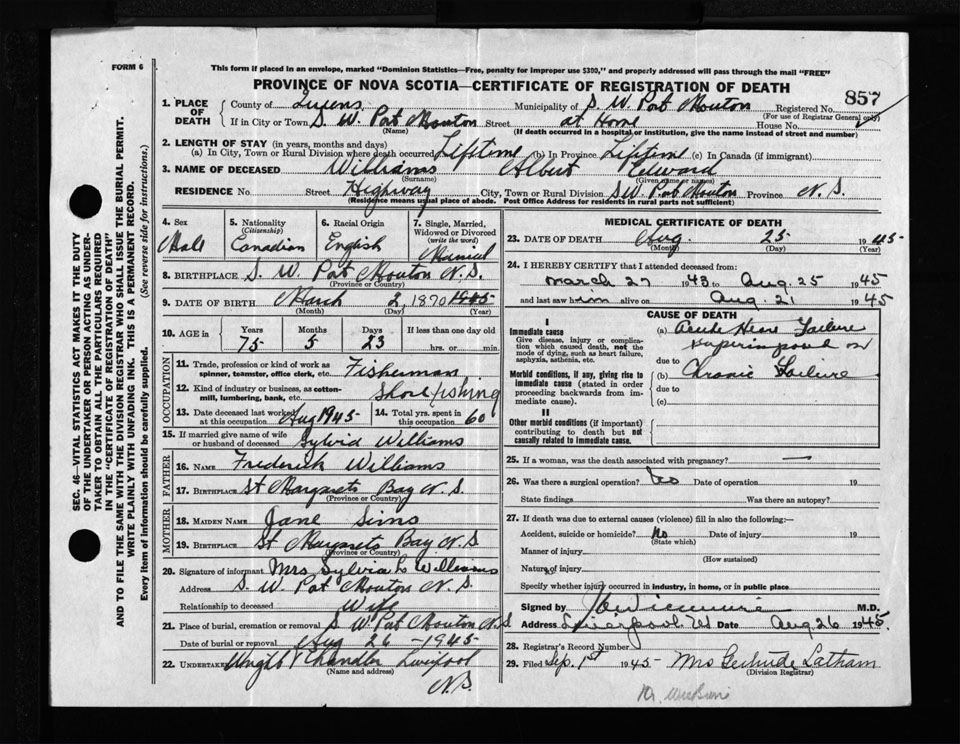 FORM 6
This form if placed in an envelope, marked "Dominion Statistics—Free, penalty for improper use $300," and properly addressed will pass through the mail "FREE"
PROVINCE OF NOVA SCOTIA—CERTIFICATE OF REGISTRATION OF DEATH
SEC. 46—VITAL STATISTICS ACT MAKES IT THE DUTY
OF THE UNDERTAKER OR PERSON ACTING AS UNDER-
TAKER TO OBTAIN ALL THE PARTICULARS REQUIRED
IN THE "CERTIFICATE OF REGISTRATION OF DEATH"
AND TO FILE THE SAME WITH THE DIVISION REGISTRAR WHO SHALL ISSUE THE BURIAL PERMIT.
WRITE PLAINLY WITH UNFADING INK. THIS IS A PERMANENT RECORD.
Every item of information should be carefully supplied. (See reverse side for instructions.)
1. PLACE OF DEATH
County of Queens Municipality of S. W. Port Mouton Registered No. 857
(For use of Registrar General only)
If in City or Town S. W. Port Mouton Street at Home House No.
(Name) (If death occurred in a hospital or institution, give the name instead of street and number)
2. LENGTH OF STAY (in years, months and days)
(a) In City, Town or Rural Division where death occurred Lifetime (b) In Province Lifetime (c) In Canada (if immigrant)
3. NAME OF DECEASED Williams Albert Edward
(Surname) (Given name or names)
RESIDENCE No. Street Highway City, Town or Rural Division S W. Port Mouton Province N. S.
(Residence means usual place of abode. Post Office Address for residents in rural parts not sufficient)
4. Sex Male
5. Nationality (Citizenship) Canadian
6. Racial Origin English
7. Single, Married, Widowed or Divorced (write the word) Married
8. BIRTHPLACE S. W. Port Mouton N. S.
(Province or Country)
9. DATE OF BIRTH March 2, 1870
(Month) (Day) (Year)
10. AGE in Years 75 Months 5 Days 23 If less than one day old hrs. or min.
OCCUPATION
11. Trade, profession or kind of work as spinner, teamster, office clerk, etc. Fisherman
12. Kind of industry or business, as cotton-mill, lumbering, bank, etc. Shore fishing
13. Date deceased last worked at this occupation Aug 1945
14. Total yrs. spent in this occupation 60
15. If married give name of wife or husband of deceased Sylvia Williams
FATHER
16. NAME Frederick Williams
17. BIRTHPLACE St Margarets Bay N. S.
(Province or Country)
MOTHER
18. MAIDEN NAME Jane Sims
19. BIRTHPLACE St Margrets Bay N. S
(Province or Country)
20. Signature of informant Mrs Sylvia L Williams
Address S. W. Port Mouton N. S
Relationship to deceased Wife
21. Place of burial, cremation or removal S. W. Port Mouton N. S
Date of burial or removal Aug 26 - 1945
22. UNDERTAKER Wright & Chandler Liverpool
(Name and address)
N. S.
MEDICAL CERTIFICATE OF DEATH
23. DATE OF DEATH Aug. 25 1945
(Month) (Day) (Year)
24. I HEREBY CERTIFY that I attended deceased from:
March 27 1943 to Aug. 25 1945
and last saw him alive on Aug. 21 1945
CAUSE OF DEATH
I
Immediate cause
Give disease, injury or complication which caused death, not the mode of dying, such as heart failure, asphyxia, asthenia, etc.
(a) Acute Heart Failure
superimposed on
due to
Morbid conditions, if any, giving rise to immediate cause (stated in order proceeding backwards from immediate cause).
(b) Chronic Failure
due to
(c)
II
Other morbid conditions (if important) contributing to death but not causally related to immediate cause.
25. If a woman, was the death associated with pregnancy? —
26. Was there a surgical operation? No Date of operation 19
State findings Was there an autopsy?
27. If death was due to external causes (violence) fill in also the following:—
Accident, suicide or homicide? No Date of injury 19
(State which)
Manner of injury
(How sustained)
Nature of injury
Specify whether injury occurred in industry, in home, or in public place
Signed by M.D.
Address Liverpool NS Date Aug 26 1945.
28. Registrar's Record Number
29. Filed Sep. 1st 1945 - Mrs Gertrude Latham
(Division Registrar)
Dr.